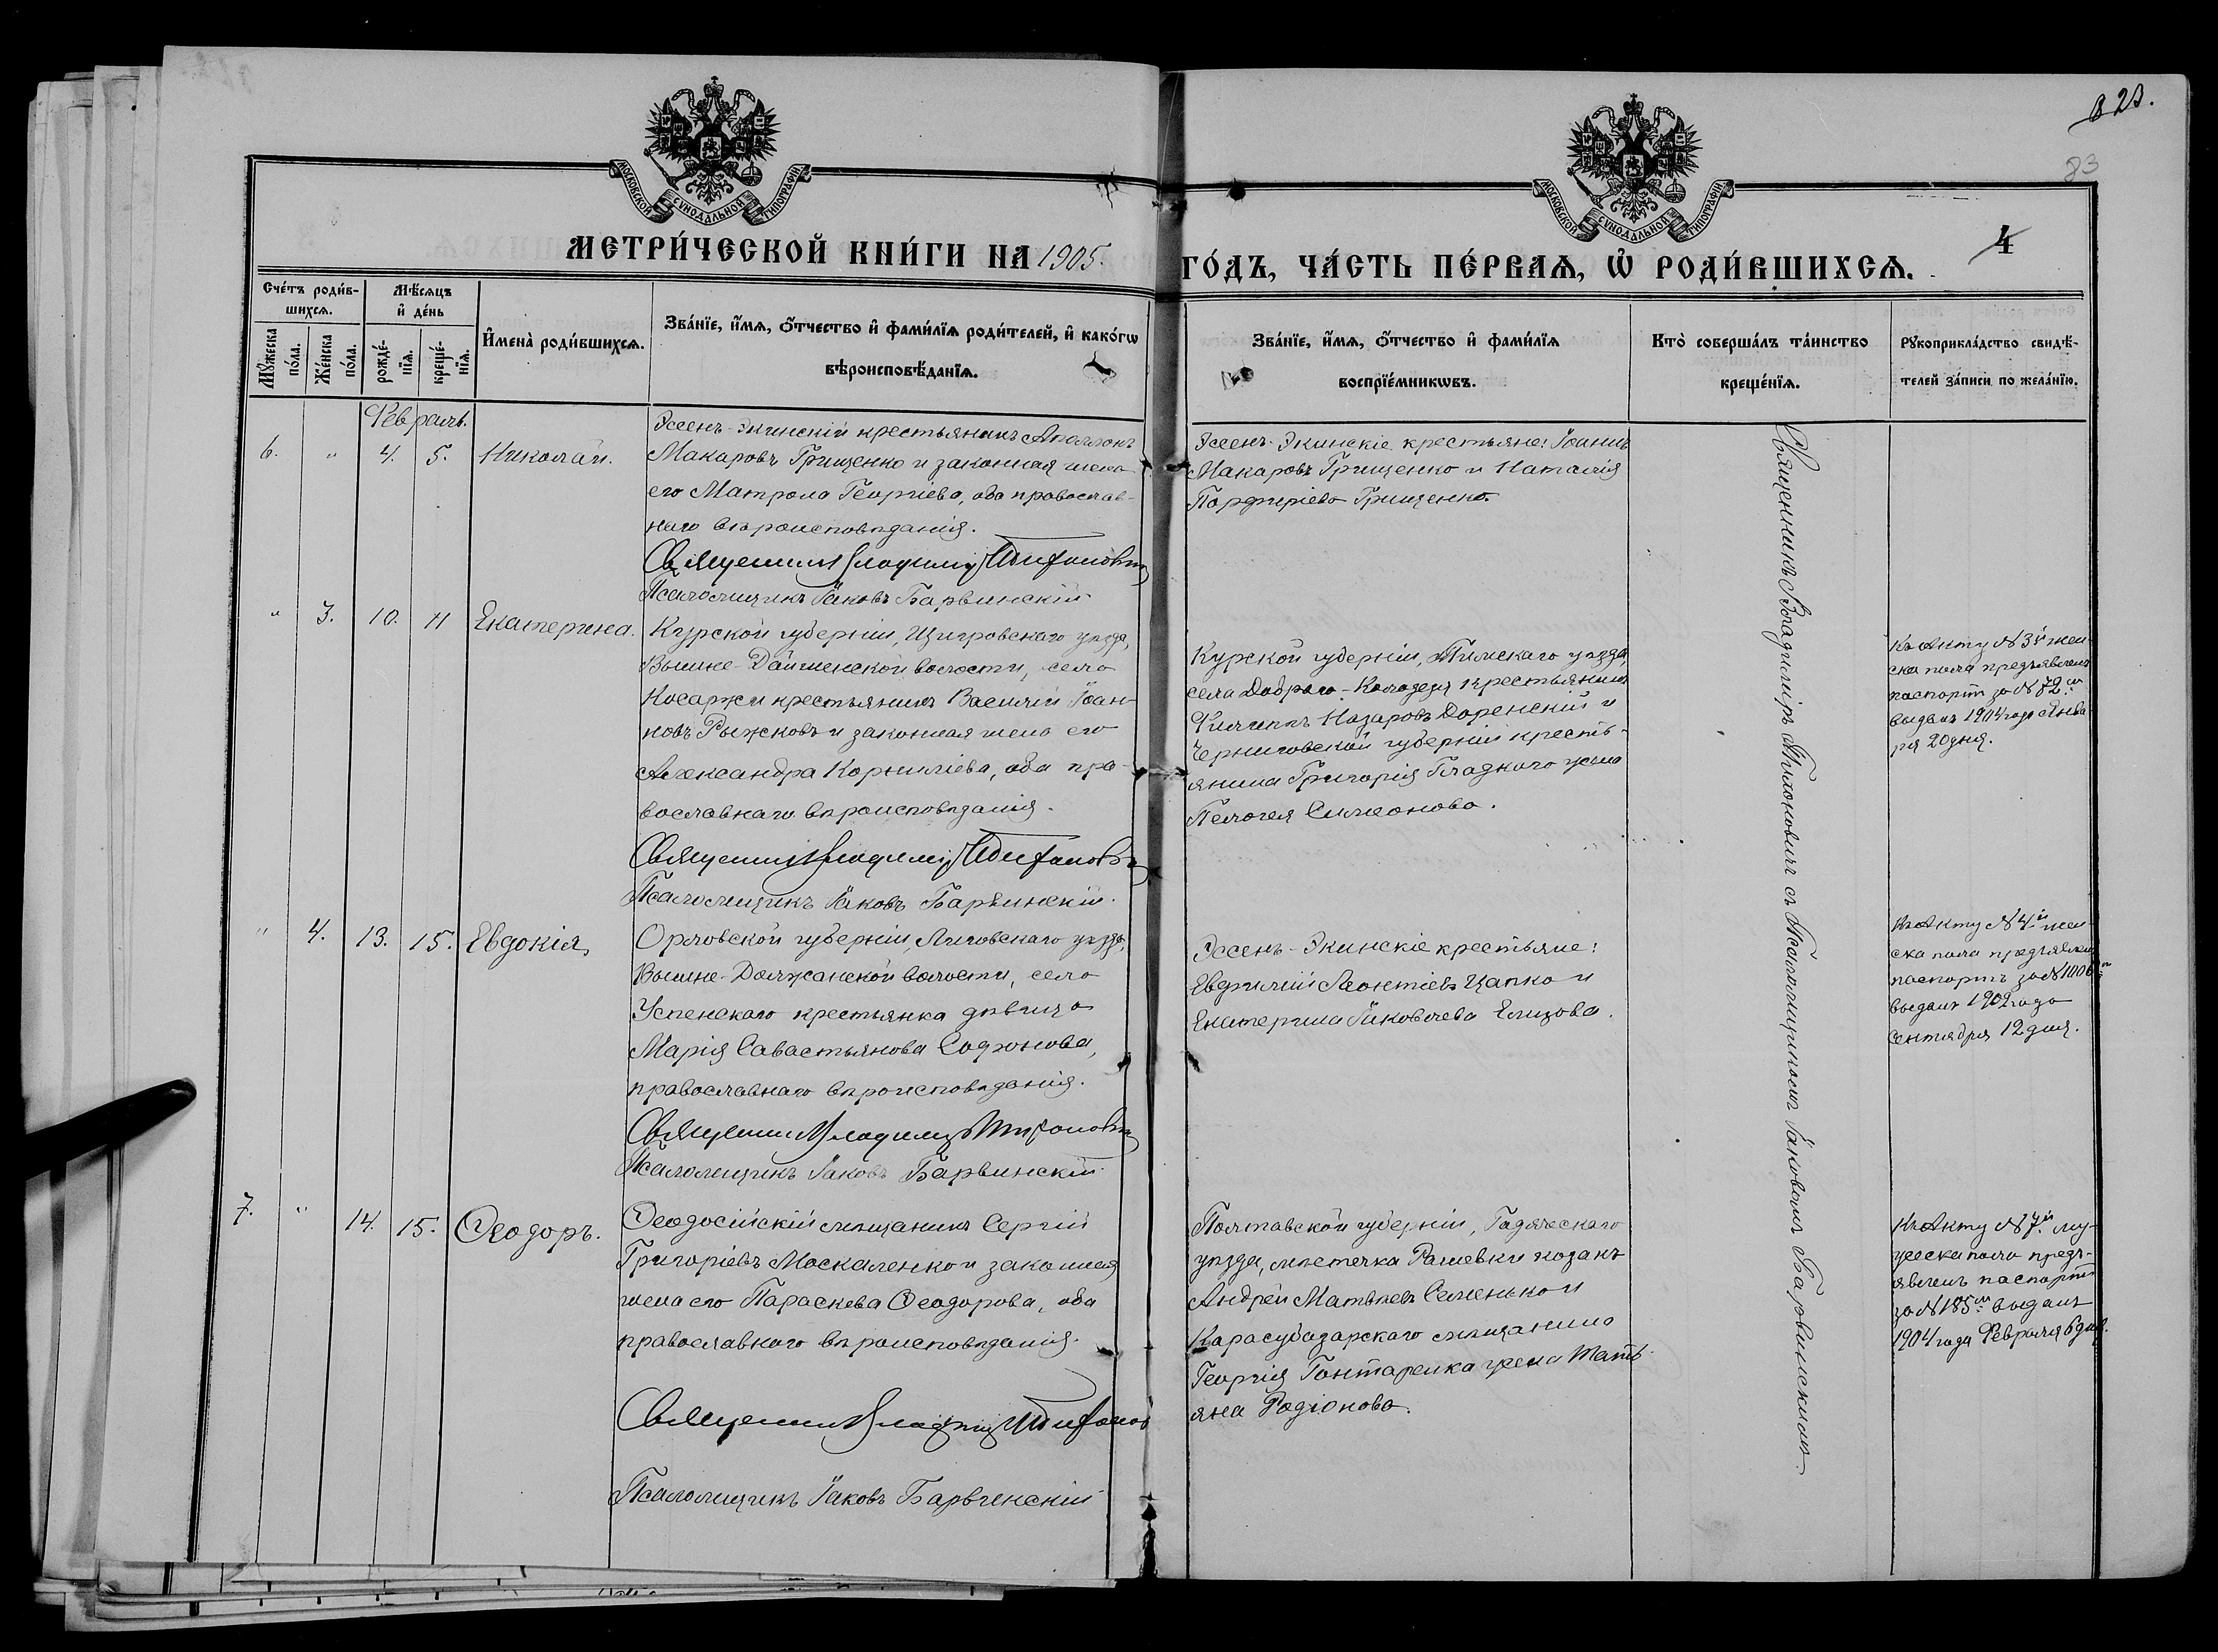 823.
83
4
МОСКОВСКОЙ СѴНОДАЛЬНОЙ ТИПОГРАФІИ
МОСКОВСКОЙ СѴНОДАЛЬНОЙ ТИПОГРАФІИ
МЕТРИ́ЧЕСКОЙ КНИ́ГИ НА 1905. ГО́ДЪ, ЧА́СТЬ ПЕ́РВАѦ, Ѡ҆ РОДИ́ВШИХСѦ.
Сче́тъ роди́в-
шихсѧ.
Мꙋ́жеска по́ла.
Же́нска по́ла.
Мѣ́сѧцъ
и҆ де́нь
рожде́-
нїѧ.
креще́-
нїѧ.
И҆мена̀ роди́вшихсѧ.
Зва́нїе, и҆́мѧ, ѻ҆́тчество и҆ фами́лїѧ роди́телей, и҆ како́гѡ
вѣроисповѣ́данїѧ.
Зва́нїе, и҆́мѧ, ѻ҆́тчество и҆ фами́лїѧ
воспрїе́мникѡвъ.
Кто̀ соверша́лъ та́инство
креще́нїѧ.
Рꙋкоприкла́дство свидѣ́-
телей за́писи по жела́нїю.
Февраль.
6. " 4. 5. Николай.
Эссенъ-Экинскій крестьянинъ Аполлонъ
Макаровъ Грищенко и законная жена
его Матрона Георгіева, оба православ-
наго вѣроисповѣданія.
Священникъ Владиміръ
Псаломщикъ Іаковъ Барвинскій
Эссенъ-Экинскіе крестьяне: Іоаннъ
Макаровъ Грищенко и Наталія
Порфиріева Грищенко.
Священникъ Владиміръ съ Псаломщикомъ Іаковомъ Барвинскимъ.
" 3. 10. 11 Екатерина.
Курской губерніи, Щигровскаго уѣзда,
Вышне-Даименской волости, села
Косаржи крестьянинъ Василій Іоан-
новъ Рыжковъ и законная жена его
Александра Корниліева, оба пра-
вославнаго вѣроисповѣданія.
Священникъ Владиміръ
Псаломщикъ Іаковъ Барвинскій.
Курской губерніи, Тимскаго уѣзда,
села Добраго-Колодезя крестьянинъ
Филиппъ Назаровъ Доренскій и
Черниговской губерніи кресть-
янина Григорія Гладкаго жена
Пелагея Симеонова.
Къ Акту № 3й жен-
ска пола предъявленъ
паспортъ за № 72м
выданъ 1904 года Янва-
ря 20 дня.
" 4. 13. 15. Евдокія,
Орловской губерніи, Ливовскаго уѣзда,
Вышне-Должанской волости, села
Успенскаго крестьянка дѣвица
Марія Савастьянова Сафонова,
православнаго вѣроисповѣданія.
Священникъ Владиміръ
Псаломщикъ Іаковъ Барвинскій
Эссенъ-Экинскіе крестьяне:
Евфимій Леонтіевъ Цапко и
Екатерина Іаковлева Елизова.
Къ Акту № 4й жен-
ска пола предъявленъ
паспортъ за № 1006м
выданъ 1902 года
Сентября 12 дня.
7. " 14. 15. Ѳеодоръ.
Ѳеодосійскій мѣщанинъ Сергій
Григоріевъ Москаленко и законная
жена его Параскева Ѳеодорова, оба
православнаго вѣроисповѣданія.
Священникъ Владиміръ
Псаломщикъ Іаковъ Барвинскій
Полтавской губерніи, Гадяческаго
уѣзда, мѣстечка Рашевки козакъ
Андрей Матвѣевъ Семенько и
Карасубазарскаго мѣщанина
Георгія Гонтаренка жена Тать-
яна Родіонова.
Къ Акту № 7й му-
жеска пола предъ-
явленъ паспортъ
за № 185м выданъ
1904 года Февраля 6 дня.